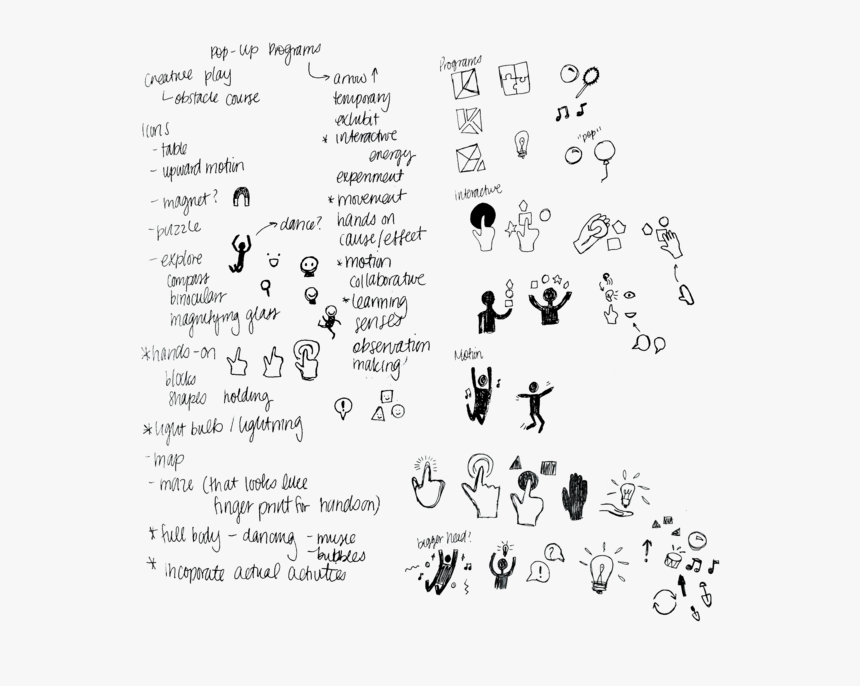 pop-up programs
creative play
obstacle course
Icons
- table
- upward motion
- magnet?
- puzzle
dance?
- explore
compass
binoculars
magnifying glass
*hands-on
blocks
shapes holding
*light bulb / lightning
- map
- maze (that looks like
finger print for hands on)
* full body - dancing - music
- bubbles
* incoporate actual activities
arrow ↑
temporary
exhibit
* interactive
energy
experiment
* movement
hands on
cause/effect
*motion
collaborative
*learning
senses
observation
making
Programs
"pop"
interactive
Motion
bigger head?